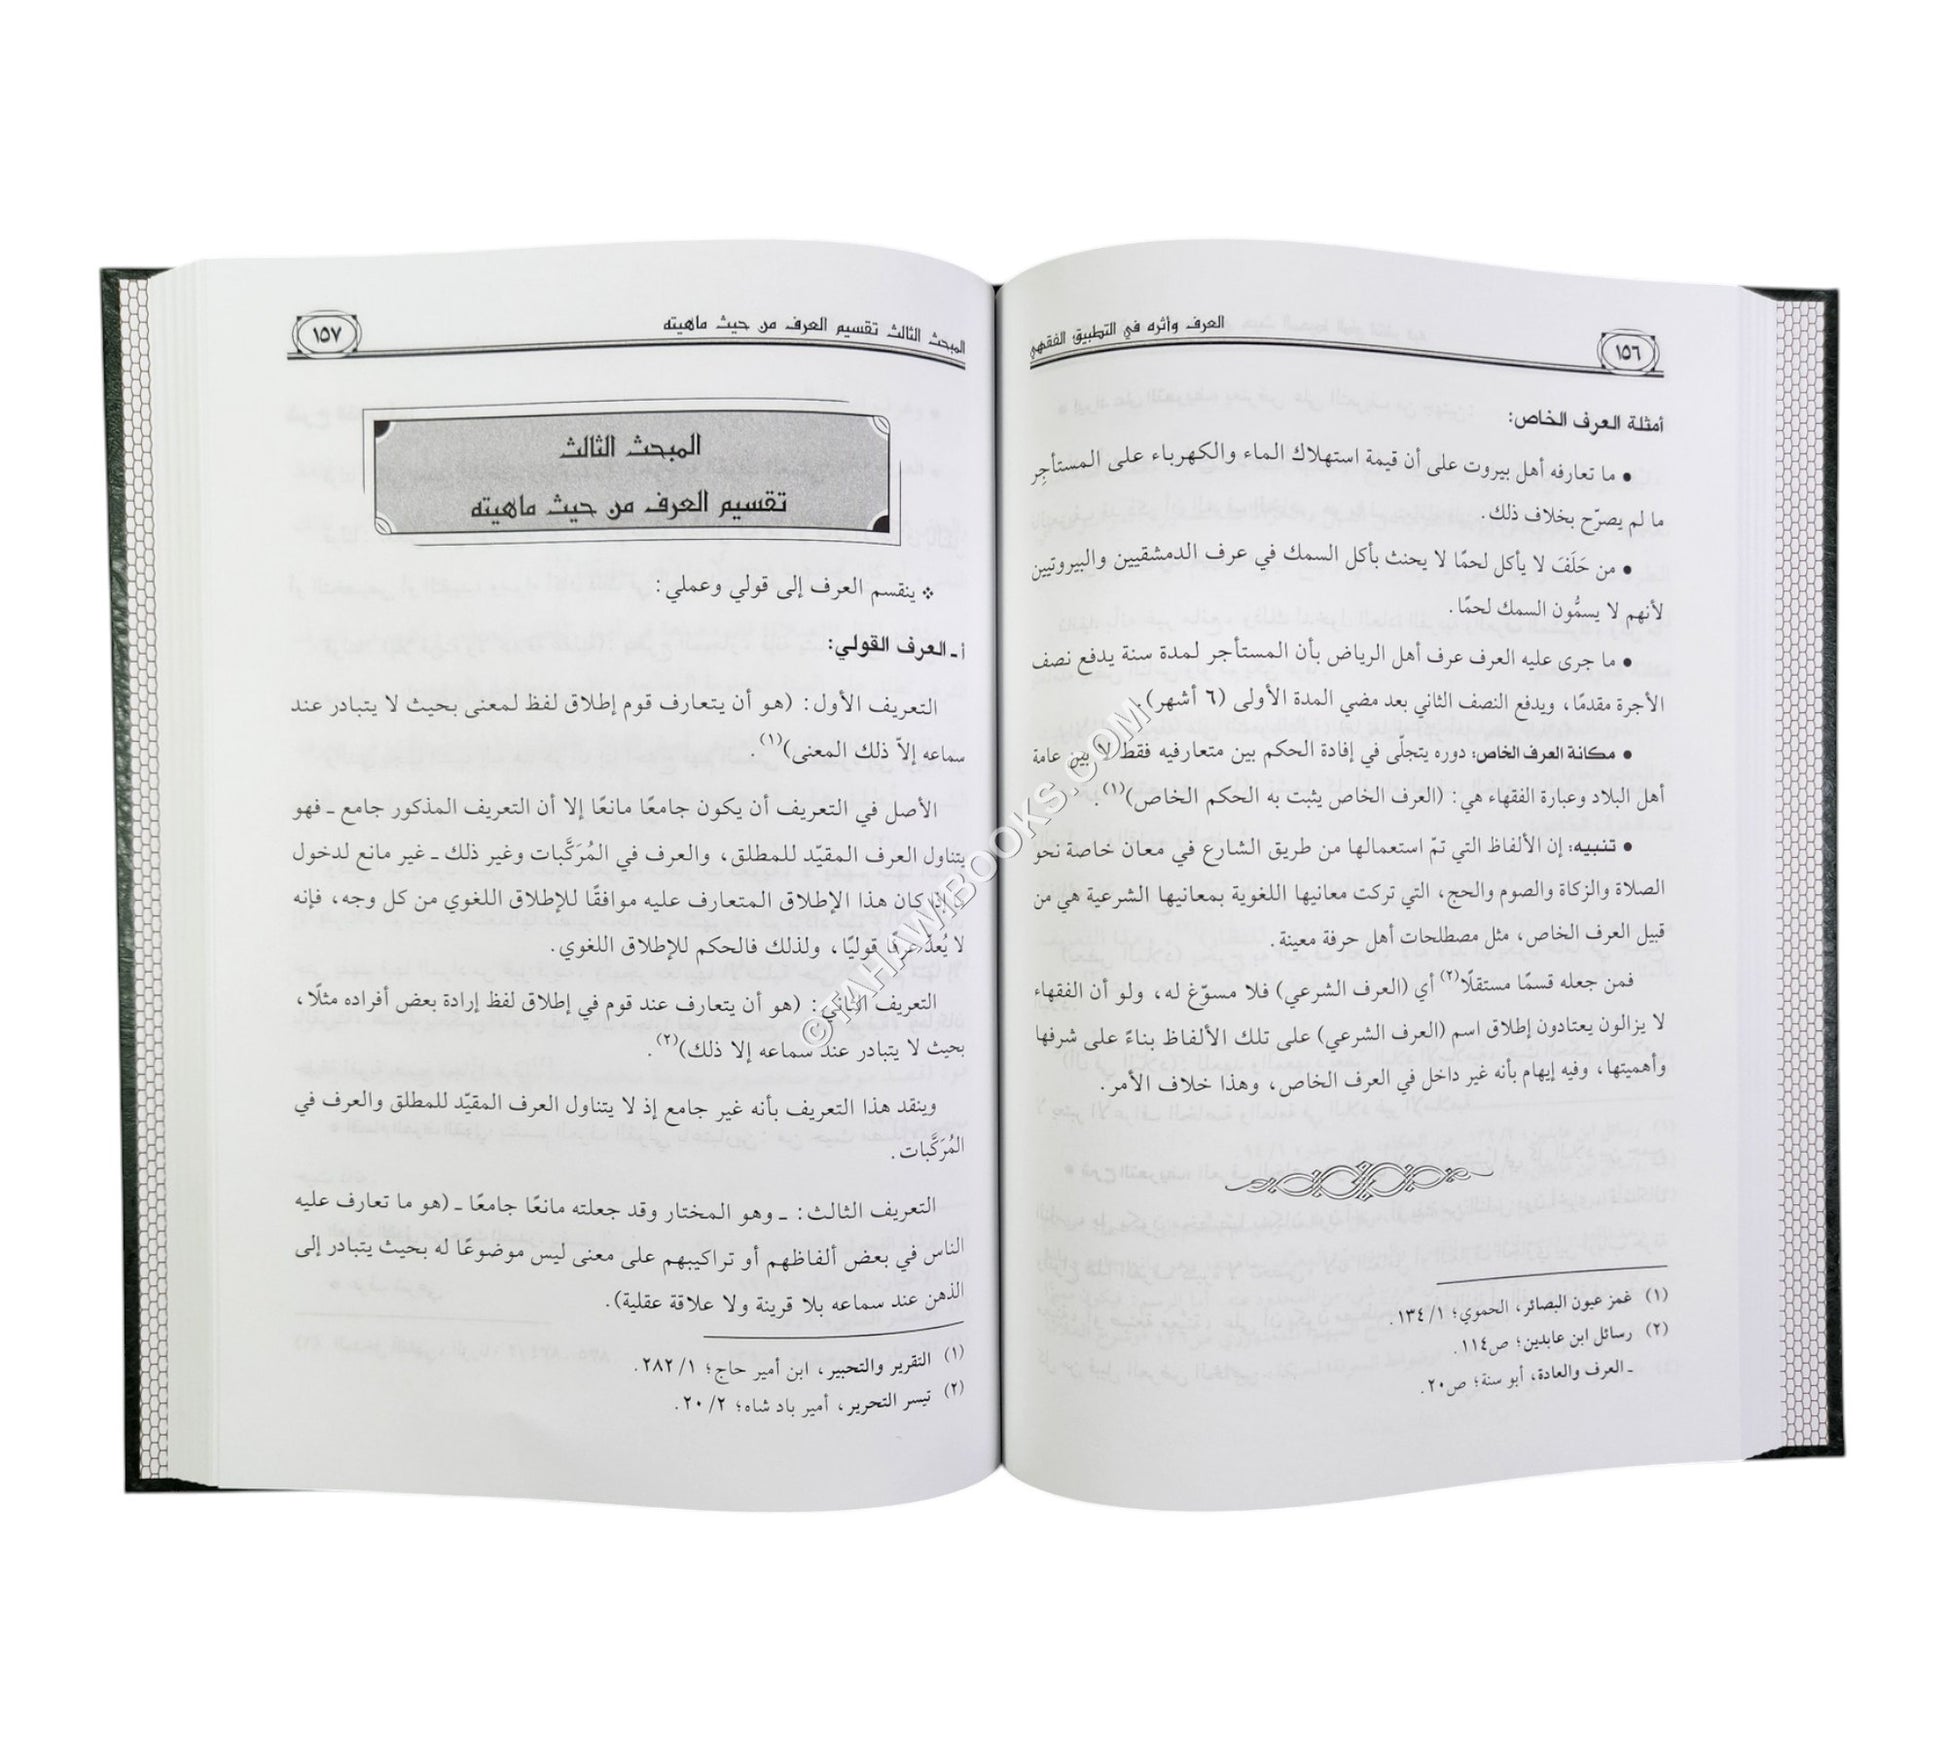 ١٥٦
العرف وأثره في التطبيق الفقهي
أمثلة العرف الخاص:
• ما تعارفه أهل بيروت على أن قيمة استهلاك الماء والكهرباء على المستأجِر
ما لم يصرّح بخلاف ذلك.
• من حَلَفَ لا يأكل لحمًا لا يحنث بأكل السمك في عرف الدمشقيين والبيروتيين
لأنهم لا يسمُّون السمك لحمًا.
• ما جرى عليه العرف عرف أهل الرياض بأن المستأجر لمدة سنة يدفع نصف
الأجرة مقدمًا، ويدفع النصف الثاني بعد مضي المدة الأولى (٦ أشهر).
• مكانة العرف الخاص: دوره يتجلّى في إفادة الحكم بين متعارفيه فقط لا بين عامة
أهل البلاد وعبارة الفقهاء هي: (العرف الخاص يثبت به الحكم الخاص)(١).
• تنبيه: إن الألفاظ التي تمّ استعمالها من طريق الشارع في معان خاصة نحو
الصلاة والزكاة والصوم والحج، التي تركت معانيها اللغوية بمعانيها الشرعية هي من
قبيل العرف الخاص، مثل مصطلحات أهل حرفة معينة.
فمن جعله قسمًا مستقلًا(٢) أي (العرف الشرعي) فلا مسوّغ له، ولو أن الفقهاء
لا يزالون يعتادون إطلاق اسم (العرف الشرعي) على تلك الألفاظ بناءً على شرفها
وأهميتها، وفيه إيهام بأنه غير داخل في العرف الخاص، وهذا خلاف الأمر.
(١) غمز عيون البصائر، الحموي؛ ١/ ١٣٤.
(٢) رسائل ابن عابدين؛ ص١١٤.
ـ العرف والعادة، أبو سنة؛ ص٢٠.
المبحث الثالث تقسيم العرف من حيث ماهيته
١٥٧
المبحث الثالث
تقسيم العرف من حيث ماهيته
❖ ينقسم العرف إلى قولي وعملي:
أ ـ العرف القولي:
التعريف الأول: (هو أن يتعارف قوم إطلاق لفظ لمعنى بحيث لا يتبادر عند
سماعه إلاّ ذلك المعنى)(١).
الأصل في التعريف أن يكون جامعًا مانعًا إلا أن التعريف المذكور جامع ـ فهو
يتناول العرف المقيّد للمطلق، والعرف في المُرَكَّبات وغير ذلك ـ غير مانع لدخول
كان هذا الإطلاق المتعارف عليه موافقًا للإطلاق اللغوي من كل وجه، فإنه
لا يُعدّ عرفًا قوليًا، ولذلك فالحكم للإطلاق اللغوي.
التعريف الثاني: (هو أن يتعارف عند قوم في إطلاق لفظ إرادة بعض أفراده مثلًا،
بحيث لا يتبادر عند سماعه إلا ذلك)(٢).
وينقد هذا التعريف بأنه غير جامع إذ لا يتناول العرف المقيّد للمطلق والعرف في
المُرَكَّبات.
التعريف الثالث: ـ وهو المختار وقد جعلته مانعًا جامعًا ـ (هو ما تعارف عليه
الناس في بعض ألفاظهم أو تراكيبهم على معنى ليس موضوعًا له بحيث يتبادر إلى
الذهن عند سماعه بلا قرينة ولا علاقة عقلية).
(١) التقرير والتحبير، ابن أمير حاج؛ ١/ ٢٨٢.
(٢) تيسر التحرير، أمير باد شاه؛ ٢/ ٢٠.
©TAHAWIBOOKS.COM